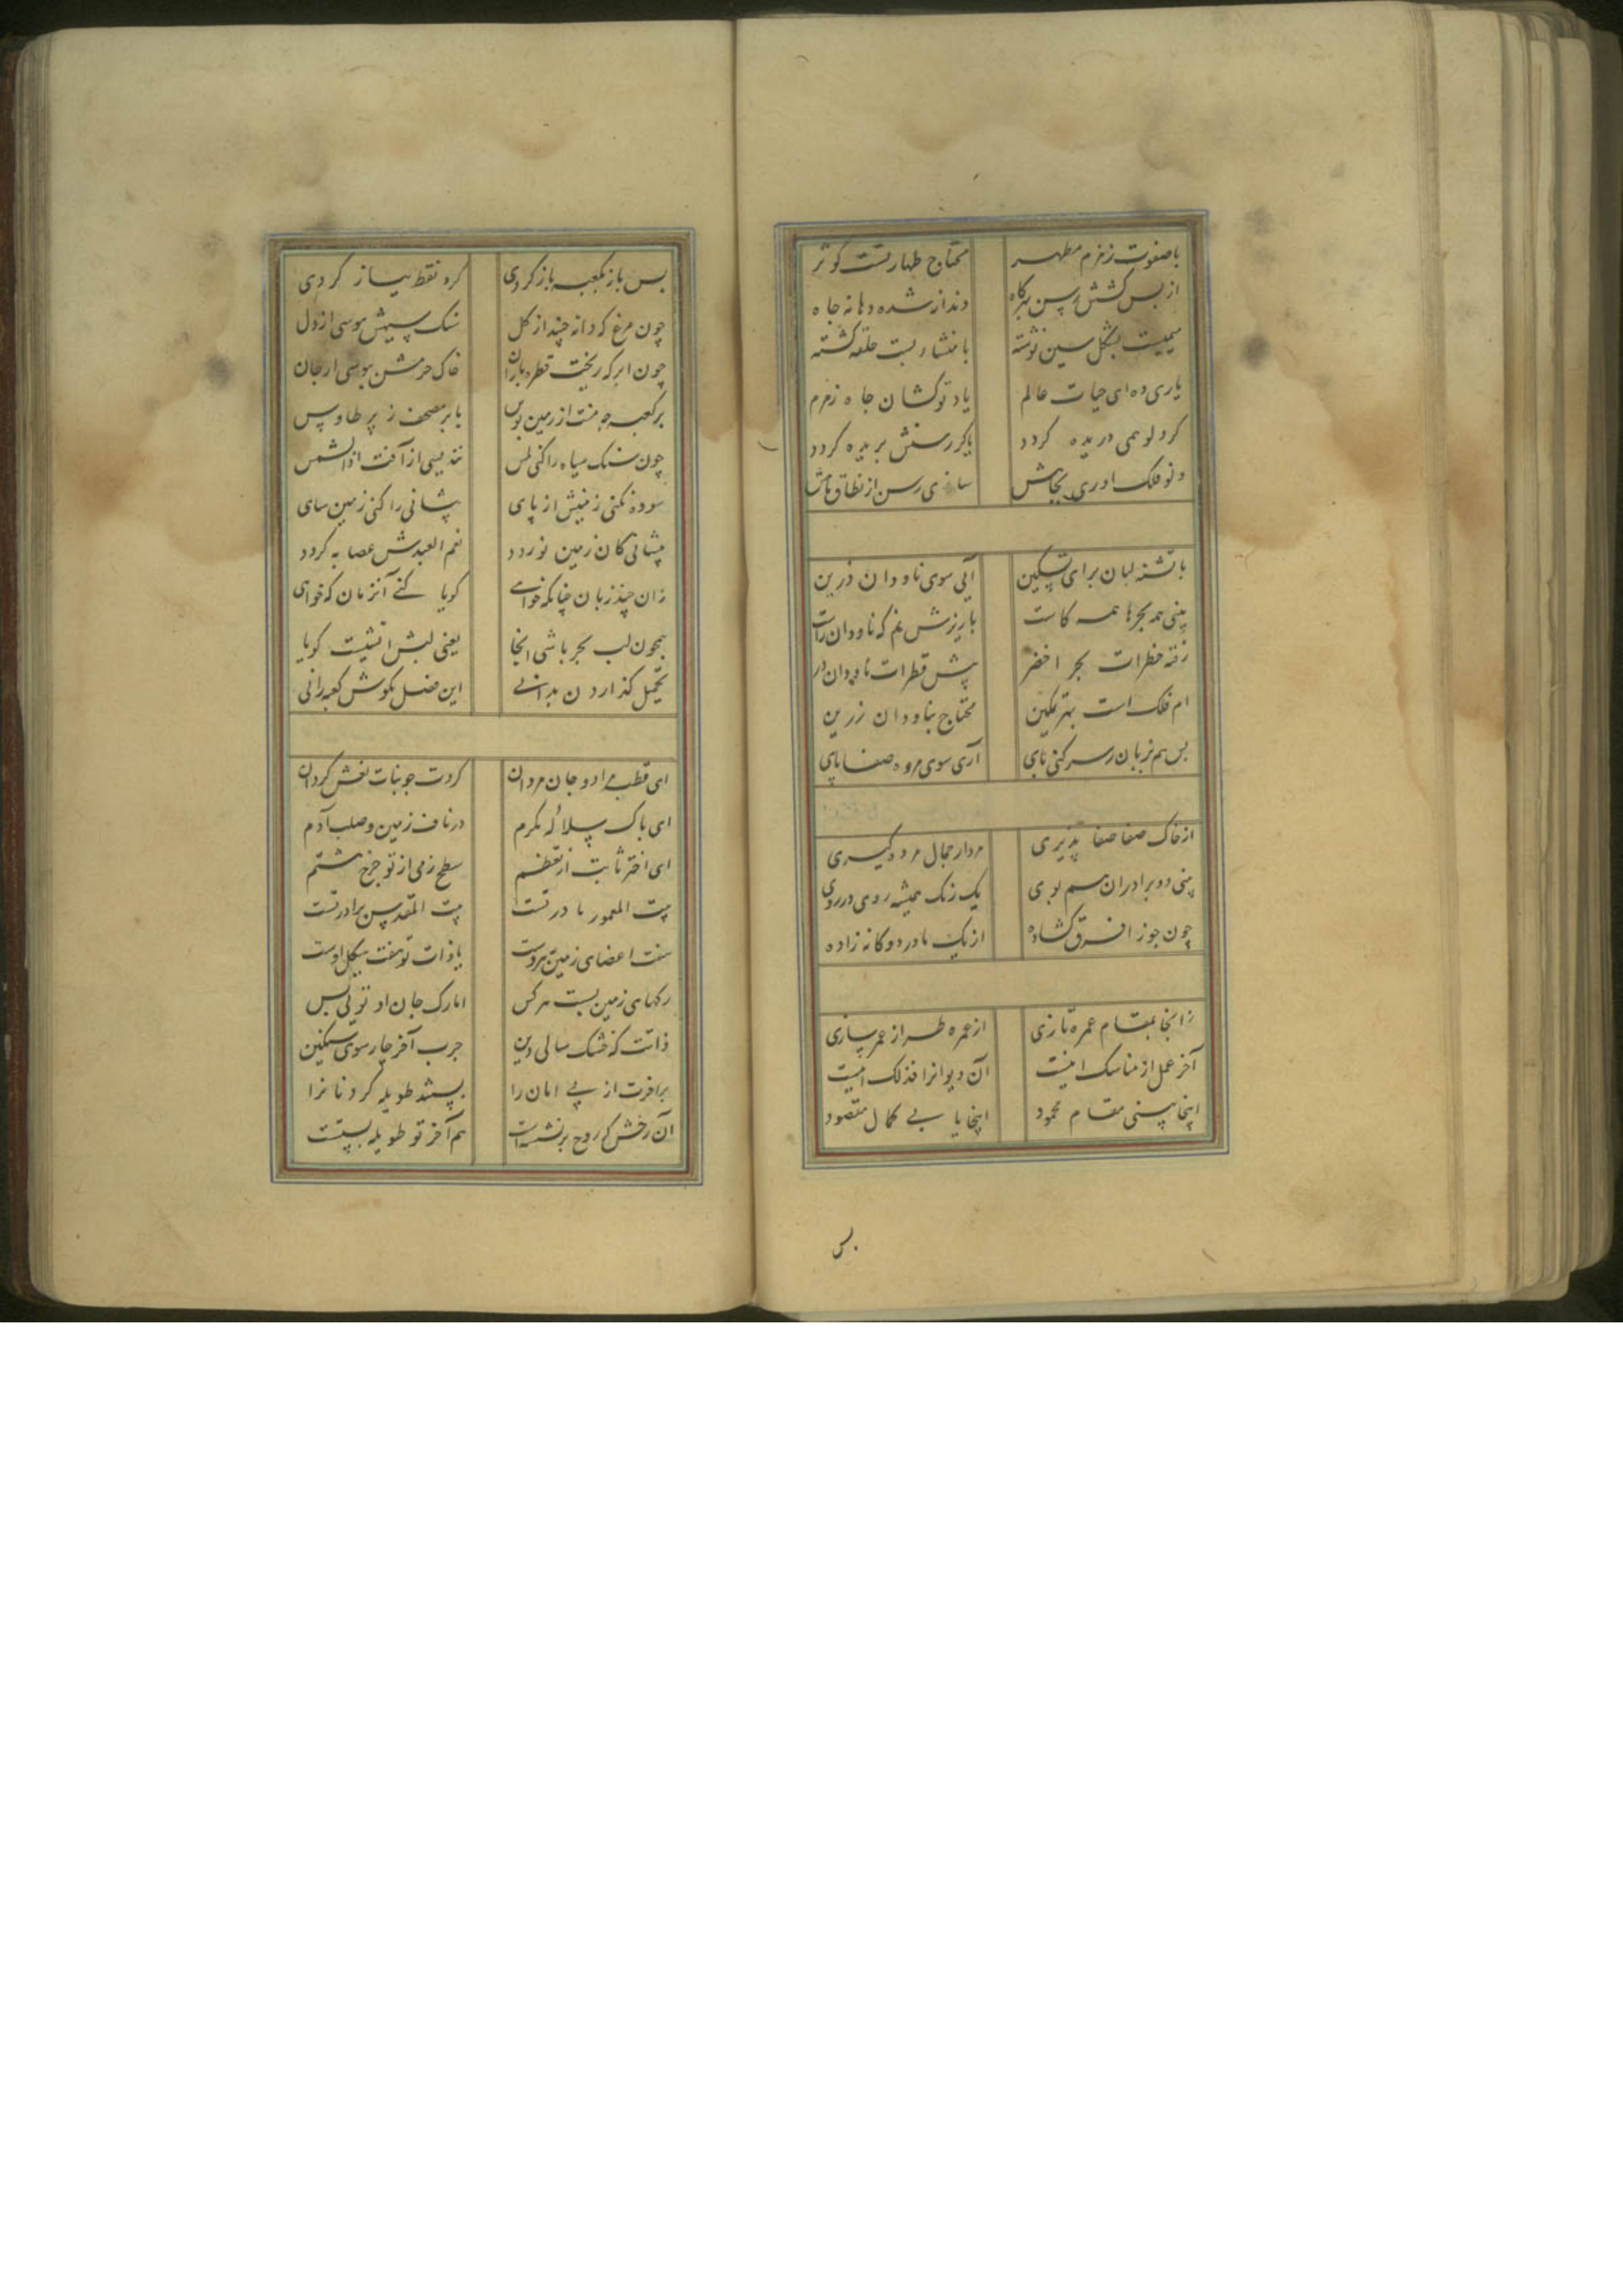 با صفوت زمزم مطهر محتاج طهارتست کوثر
از بس کشش رسن بهرگاه دندانه شده دهانه چاه
میمیست بشکل سین نوشته با منشار بست حلقه گشته
یاری ده ای حیات عالم یاد تو گشان چاه زمزم
گر دلو همی دریده گردد یا گر رسنش بریده گردد
دلو فلک اوری بچاهش سازی رسن از نطاق ماهش
با تشنه لبان برای تسکین آیی سوی ناودان زرین
بینی همه بحرها همه کاست با ریزش نم که ناودان راست
رفته خطرات بحر اخضر پیش قطرات ناودان در
ام فلک است بهر تمکین محتاج بناودان زرین
پس هم زبان ز سر کنی پای آری سوی مروه صفا پای
از خاک صفا صفا پذیری مروار جمال مروه گیری
بینی دو برادران هم بوی یک رنک همیشه روی در روی
چون جوزا فرق گشاده از یک مادر دوگانه زاده
زانجا بمقام عمره تازی از عمره طراز عمر سازی
آخر عمل از مناسک اینست آن دیوانرا فذلک اینست
اینجا بینی مقام محمود اینجا یابی کمال مقصود
پس
پس باز بکعبه باز گردی گرد نقط نیاز گردی
چون مرغ که دانه چیند از گل سنک سیهش بوسی از دل
چون ابر که ریخت قطره باران خاک حرمش ببوسی از جان
بر کعبه چه منت از زمین بوس یا بر مصحف ز پر طاوس
چون سنک سیاه را کنی لمس نندیسی از آفت اذا الشمس
سوده نکنی زمینش از پای پیشانی را کنی زمین سای
پیشانی کان زمین نوردد نعم العبدش عصابه گردد
زان چند زبان چنانکه خواهی گویا کنی آنزمان که خواهی
همچون لب بحر باشی انجا یعنی لبش انیست گویا
تحمیل گذاردن بدانی این فصل بگوش کعبه رانی
ای قطب مراد و جان مردان گردت چو بنات نعش گردان
ای پاک سلاله مکرم در ناف زمین و صلب آدم
ای اختر ثابت از تعظم سطح زمی از تو چرخ هشتم
بیت المعمور مادر تست بیت المقدس برادر تست
هفت اعضای زمین بروست با ذات تو هفت هیکل اوست
رگهای زمین ببست هر کس اما رگ جان او تویی بس
ذاتت که خشک سالی دین چرب آخر چارسوی سنگین
بر آخرت از پی امان را بستند طویله گردنانرا
آن رخش که روح بر نشستست هم آخر تو طویله بستست